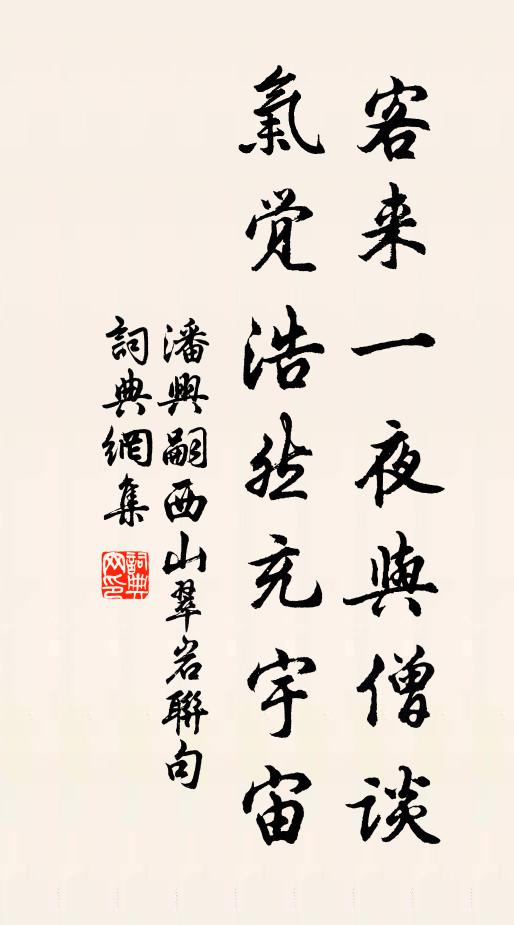 客来一夜與僧談
氣覺浩然充宇宙
潘興嗣西山翠岩聯句
詞典網集
詞典網印